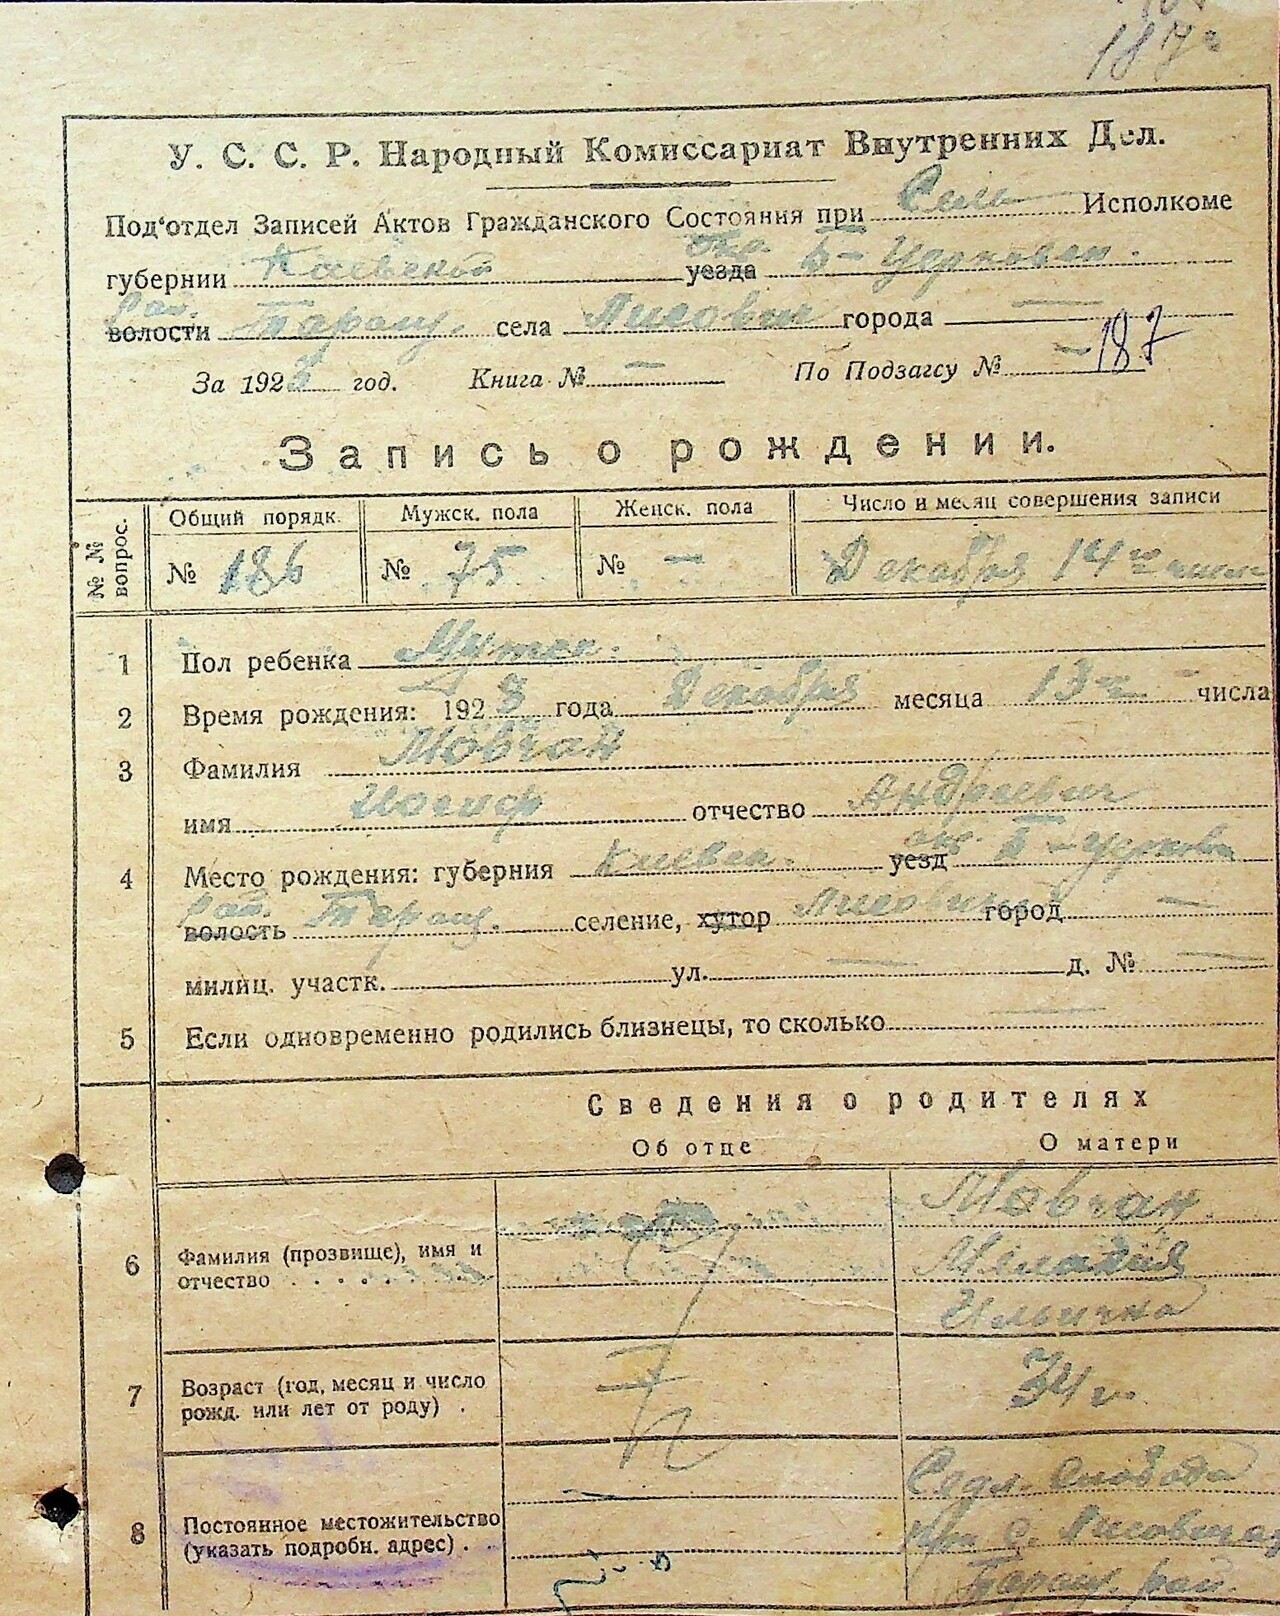 187
У. С. С. Р. Народный Комиссариат Внутренних Дел.
Под‘отдел Записей Актов Гражданского Состояния при Сель Исполкоме
губернии Киевской уезда окр. Б-Церковск.
Рай. волости Таращ. села Лисович города —
За 1923 год. Книга № — По Подзагсу № — 187
Запись о рождении.
№ № вопрос. Общий порядк. Мужск. пола Женск. пола Число и месяц совершения записи
№ 186 № 75 № — Декабря 14го числа
1 Пол ребенка Мужск.
2 Время рождения: 1923 года Декабря месяца 13го числа
3 Фамилия Мовчан
имя Иосиф отчество Андреевич
4 Место рождения: губерния Киевск. уезд окр. Б-Церковск
Рай. волость Таращ. селение, хутор Лисовичи город —
милиц. участк. ул. — д. № —
5 Если одновременно родились близнецы, то сколько —
Сведения о родителях
Об отце О матери
6 Фамилия (прозвище), имя и отчество . . . . Мовчан
Мелания
Ильична
7 Возраст (год, месяц и число рожд. или лет от роду) . 34 г.
8 Постоянное местожительство (указать подробн. адрес) . . — Слобода
при с. Лисовичах
Таращ. рай.